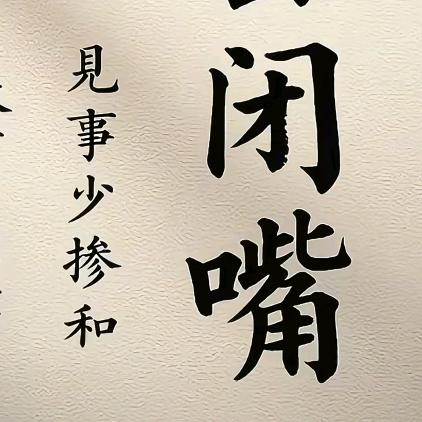 闭嘴
見事少掺和